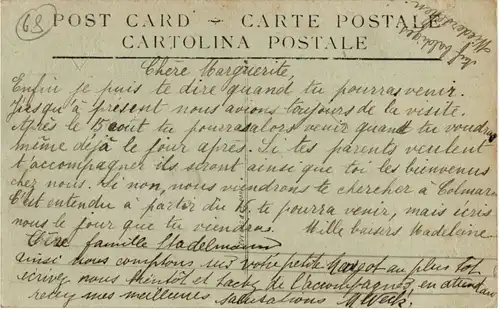 63
POST CARD – CARTE POSTALE
CARTOLINA POSTALE
Chère Marguerite,
Enfin je puis te dire quand tu pourras venir.
Jusqu'à présent nous avions toujours de la visite.
Après le 15 août tu pourras alors venir quand tu voudras
même déjà le jour après. Si tes parents veulent
t'accompagner ils seront ainsi que toi les bienvenus
chez nous. Si non, nous viendrons te chercher à Colmar.
C'est entendu à partir du 15 te pourra venir, mais écris
nous le jour que tu viendras. Mille baisers Madeleine
Chère famille Stadelmann
ainsi nous comptons sur votre petite Margot au plus tôt
écrivez nous bientôt et tachez de l'accompagnez, en attendant
recev mes meilleures salutations M